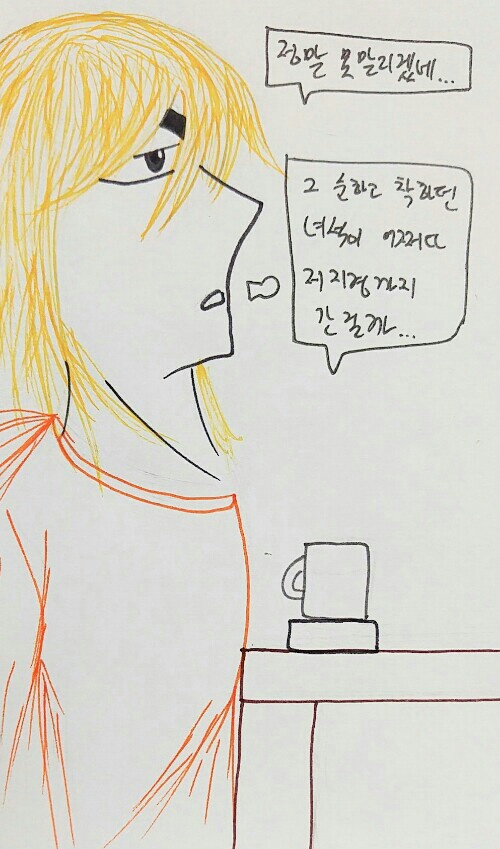 정말 못말리겠네...
그 순하고 착하던
녀석이 어쩌다
저 지경까지
간 걸까...